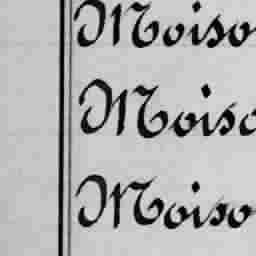 Moiso
Moiso
Moiso